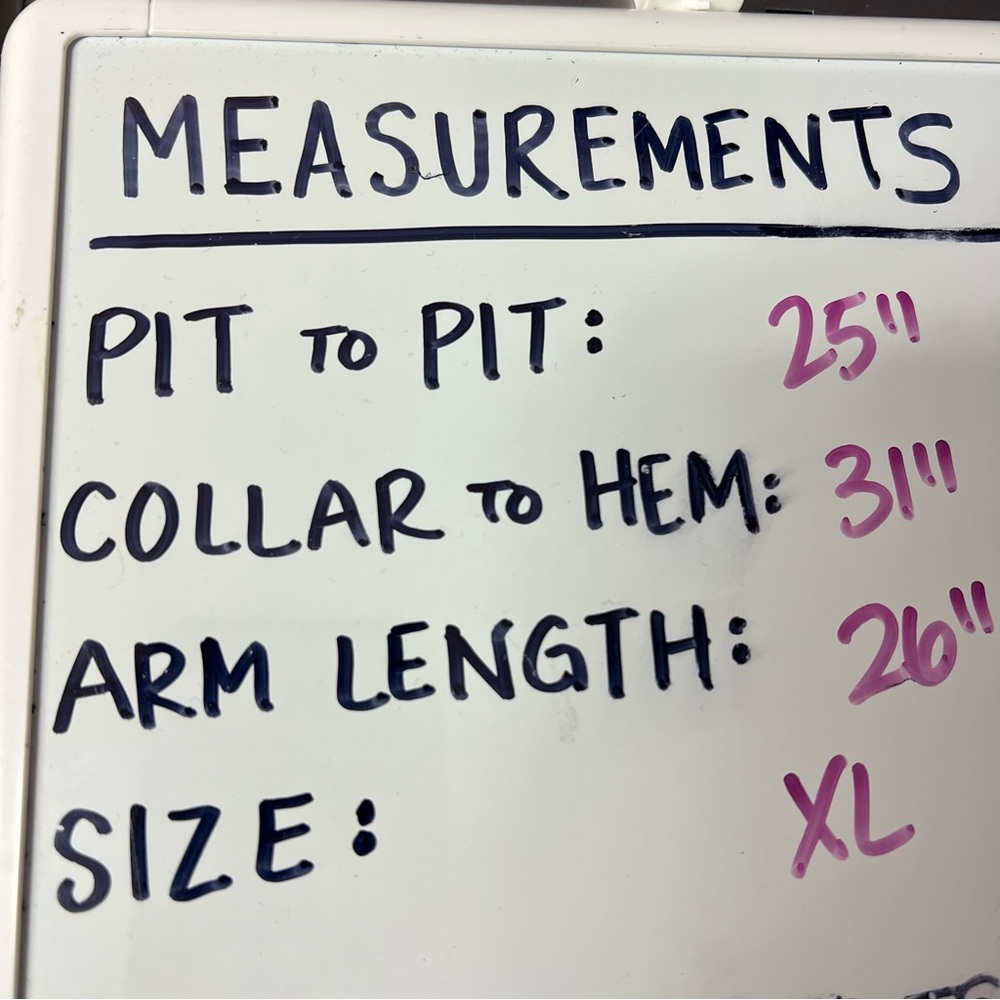 MEASUREMENTS
PIT TO PIT: 25"
COLLAR TO HEM: 31"
ARM LENGTH: 26"
SIZE: XL